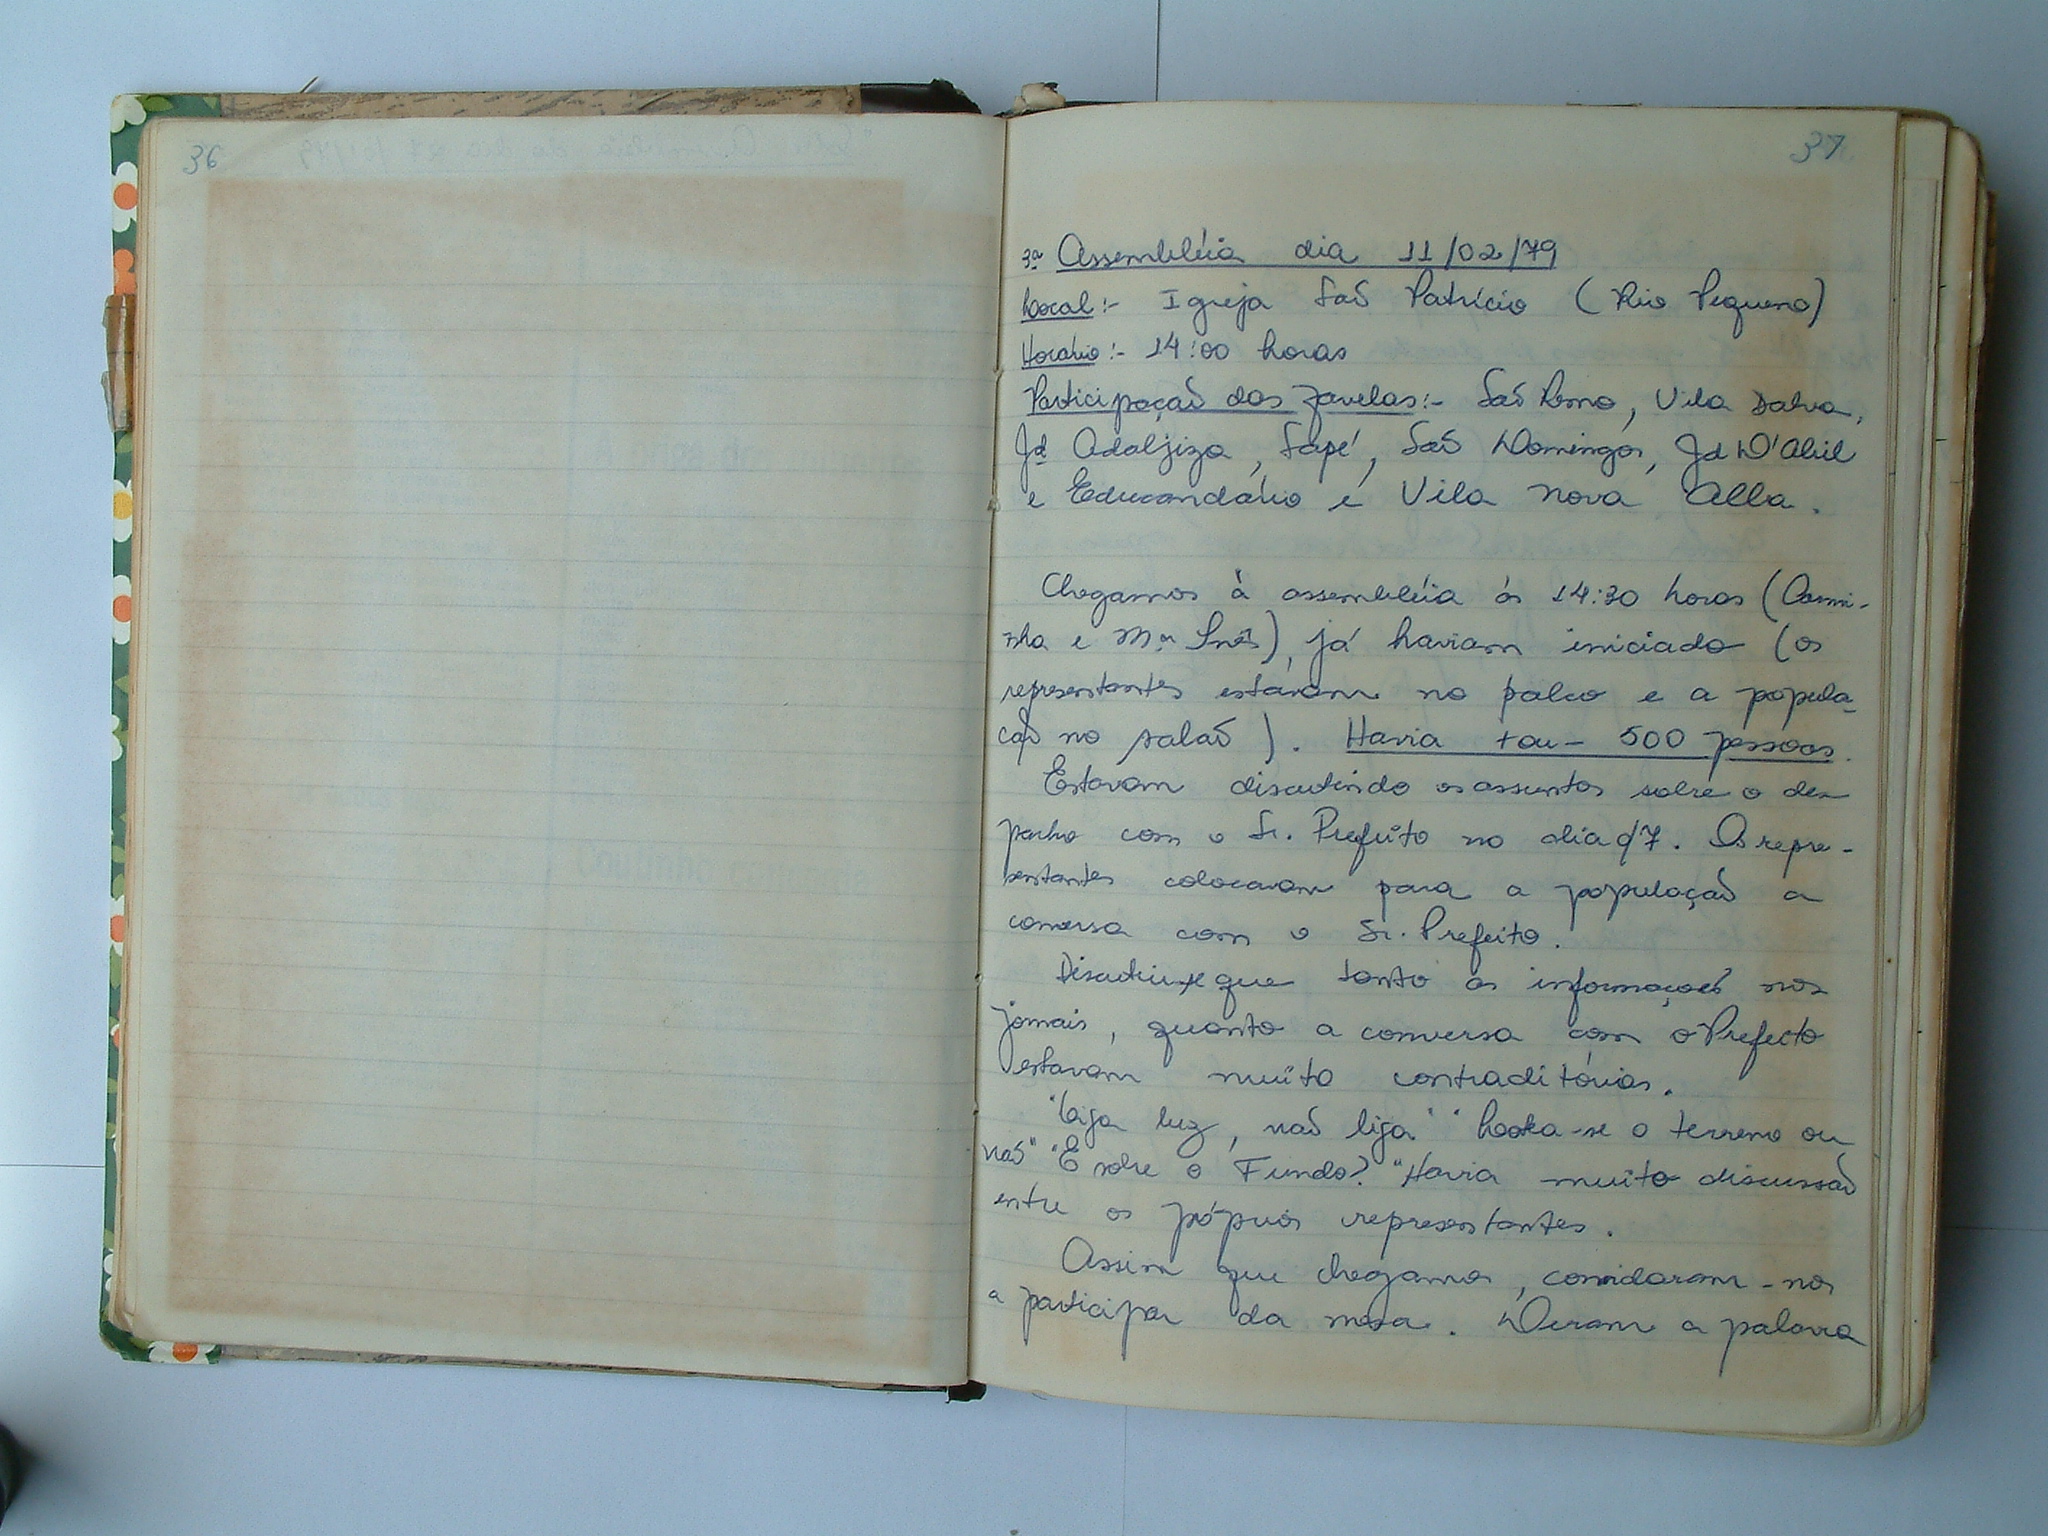 36
37
3ª Assembléia dia 11/02/79
Local:- Igreja São Patrício (Rio Pequeno)
Horário:- 14:00 horas
Participação das favelas:- São Remo, Vila Dalva,
Jd Adalgiza, Sapé, São Domingos, Jd D'Abril
e Educandário e Vila nova Alba.
Chegamos à assembléia às 14:30 horas (Carmi-
nha e Mª Inês), já haviam iniciado (os
representantes estavam no palco e a popula-
ção no salão). Havia + ou - 500 pessoas.
Estavam discutindo os assuntos sobre o des
pacho com o Sr. Prefeito no dia 07. Os repre-
sentantes colocavam para a população a
conversa com o Sr. Prefeito.
Discutiu-se que tanto as informações nos
jornais, quanto a conversa com o Prefeito
estavam muito contraditórias.
"Liga luz, não liga" " -se o terreno ou
não" "E sobre o Fundo?" Havia muito discussão
entre os própios representantes.
Assim que chegamos, convidaram-nos
a participar da mesa. Deram a palavra